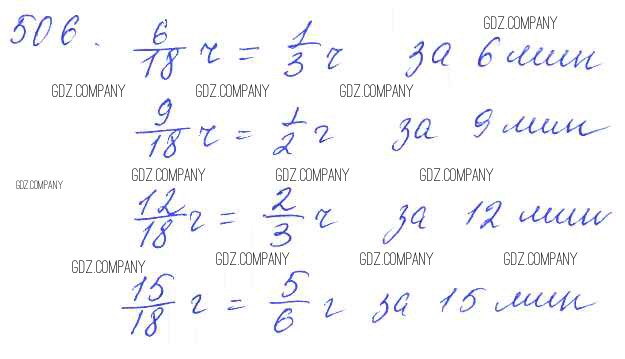 506. 6/18 ч = 1/3 ч за 6 мин
9/18 ч = 1/2 г за 9 мин
12/18 г = 2/3 ч за 12 мин
15/18 г = 5/6 г за 15 мин
GDZ.COMPANY
GDZ.COMPANY GDZ.COMPANY GDZ.COMPANY
GDZ.COMPANY GDZ.COMPANY GDZ.COMPANY
GDZ.COMPANY
GDZ.COMPANY GDZ.COMPANY GDZ.COMPANY
GDZ.COMPANY